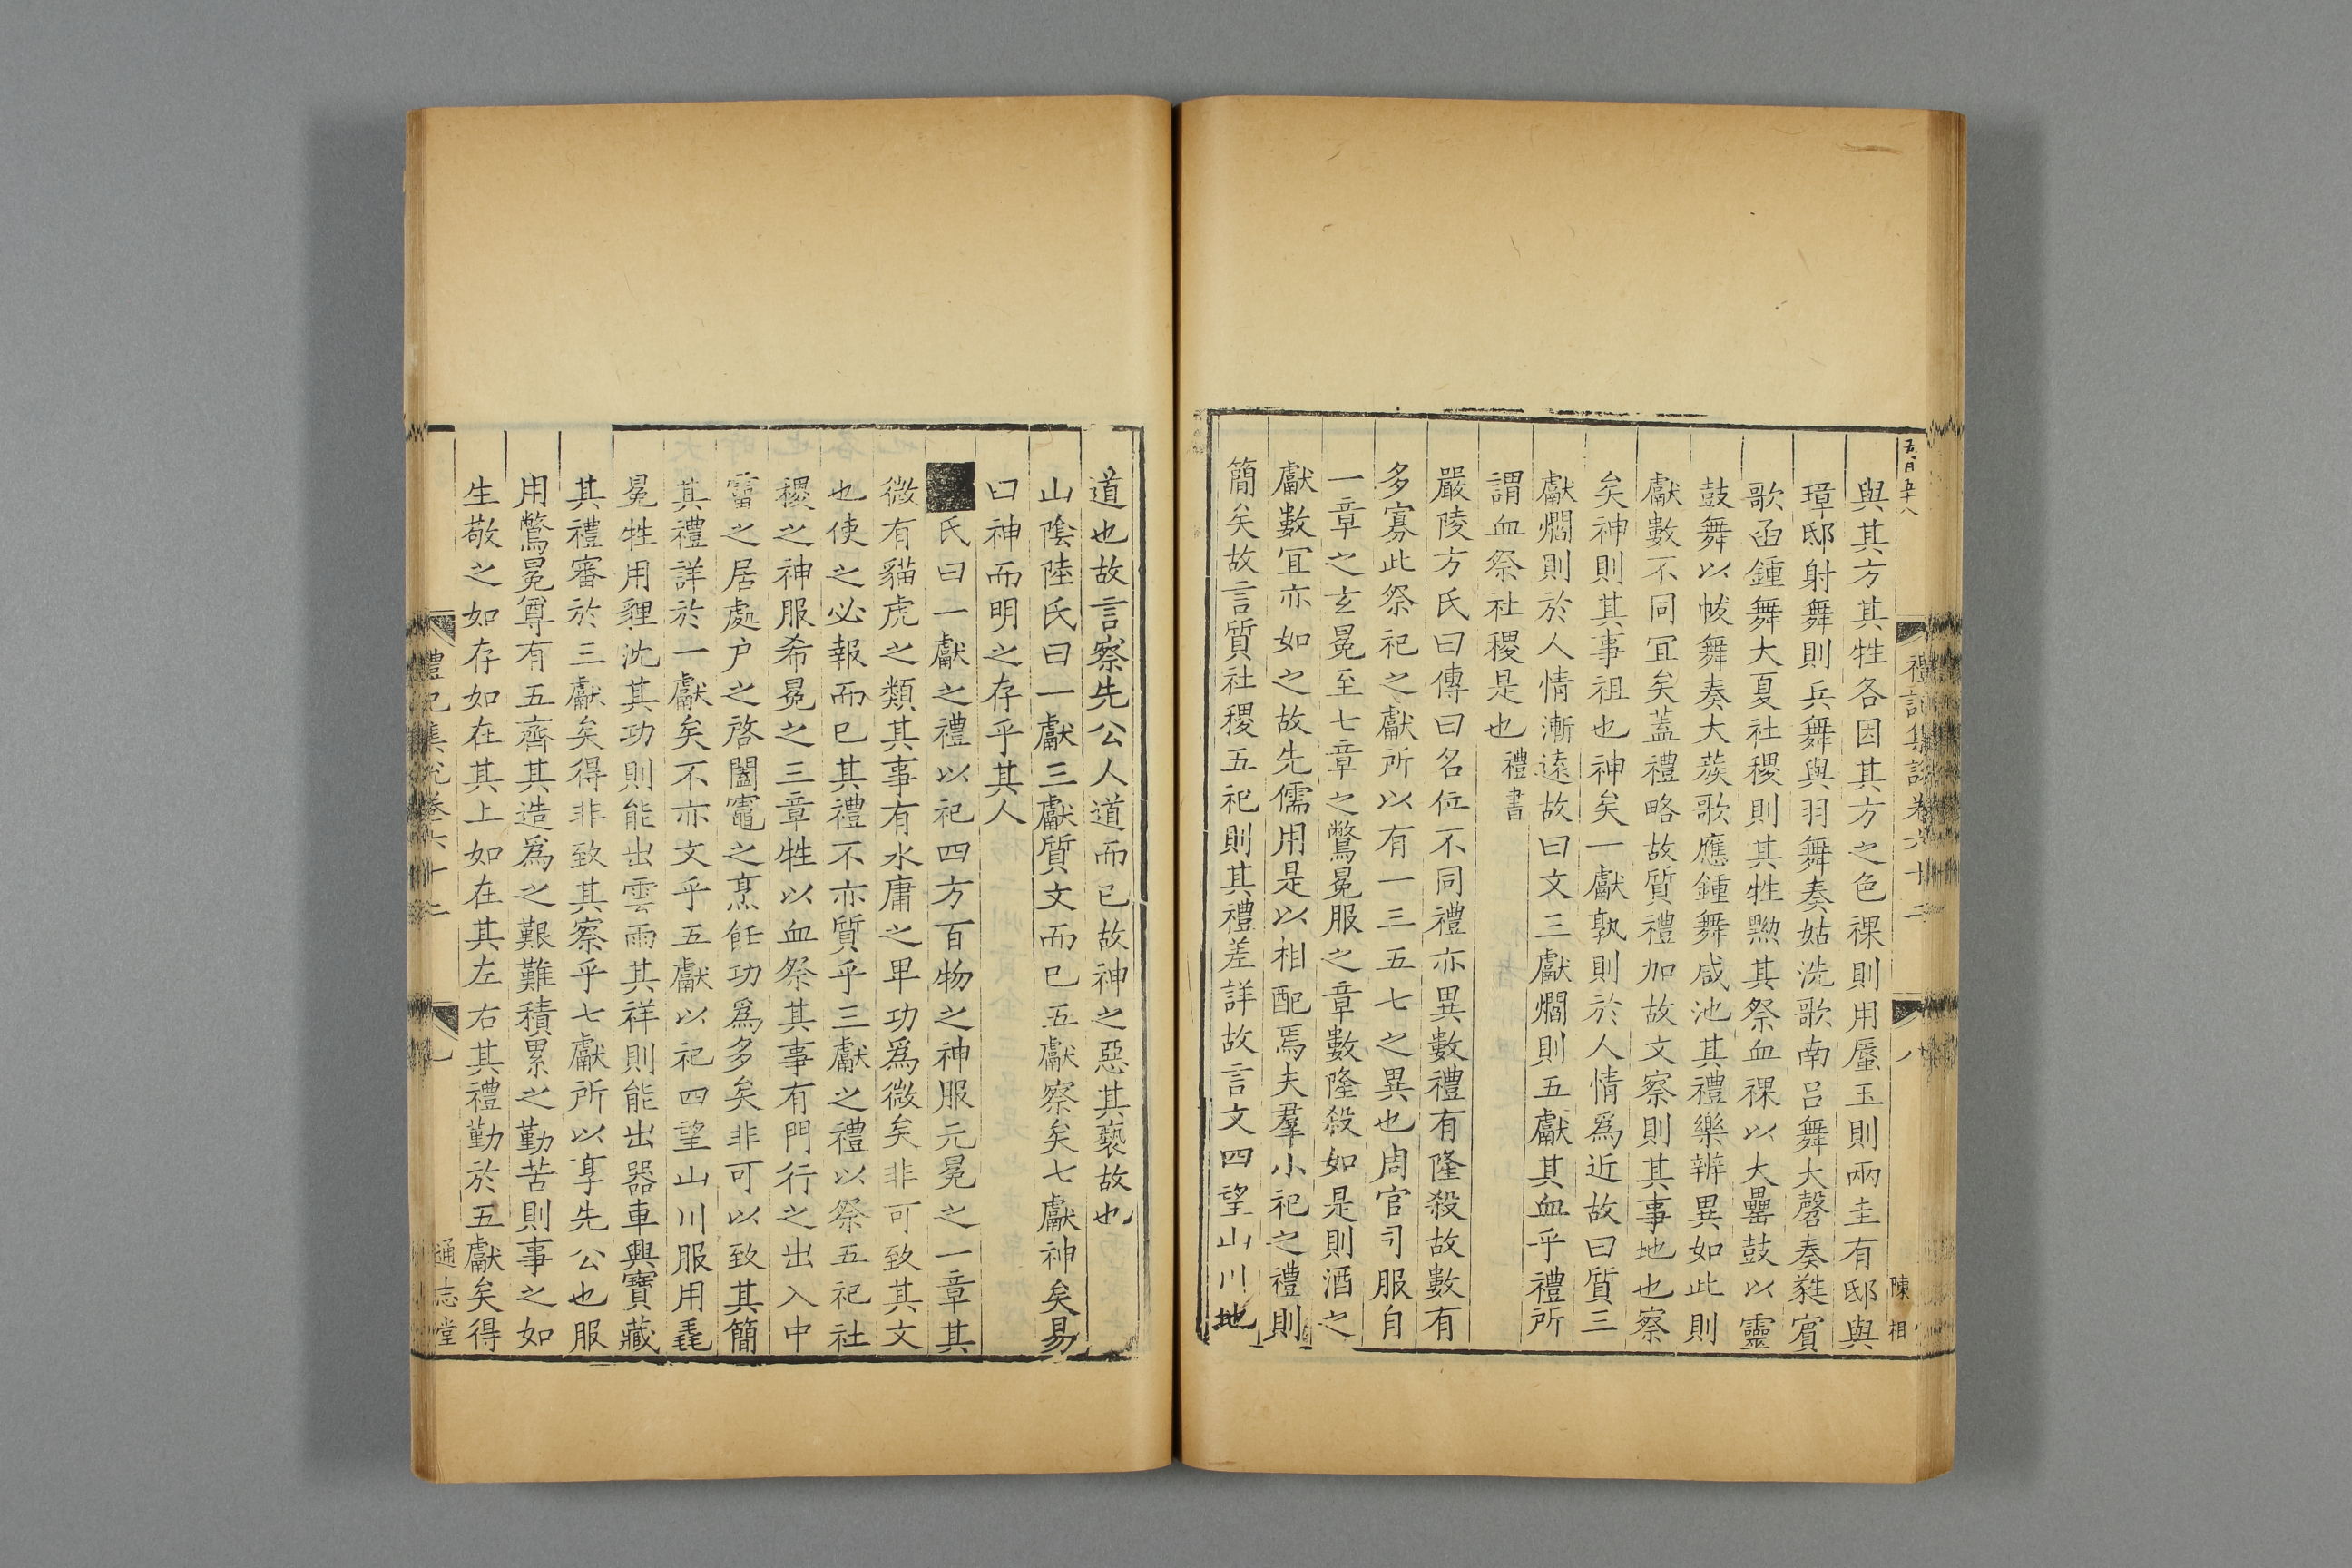 五百五十八
禮記集說卷六十二
八
陳相
與其方其牲各因其方之色祼則用蜃玉則兩圭有邸與
璋邸射舞則兵舞與羽舞奏姑洗歌南呂舞大磬奏蕤賓
歌函鍾舞大夏社稷則其牲黝其祭血祼以大罍鼓以靈
鼓舞以帗舞舞奏大蔟歌應鍾舞咸池其禮樂辨異如此則
獻數不同宜矣蓋禮略故質禮加故文察則其事地也察
矣神則其事祖也神矣一獻孰則於人情爲近故曰質三
獻爓則於人情漸遠故曰文三獻爓則五獻其血乎禮所
謂血祭社稷是也禮書
嚴陵方氏曰傳曰名位不同禮亦異數禮有隆殺故數有
多寡此祭祀之獻所以有一三五七之異也周官司服自
一章之玄冕至七章之鷩冕服之章數隆殺如是則酒之
獻數宜亦如之故先儒用是以相配焉夫羣小祀之禮則
簡矣故言質社稷五祀則其禮差詳故言文四望山川地
道也故言察先公人道而已故神之惡其褻故也
山陰陸氏曰一獻三獻質文而已五獻察矣七獻神矣易
曰神而明之存乎其人
氏曰一獻之禮以祀四方百物之神服元冕之一章其
微有貓虎之類其事有水庸之卑功爲微矣非可致其文
也使之必報而已其禮不亦質乎三獻之禮以祭五祀社
稷之神服希冕之三章牲以血祭其事有門行之出入中
霤之居處户之啓闔竈之烹飪功爲多矣非可以致其簡
其禮詳於一獻矣不亦文乎五獻以祀四望山川服用毳
冕牲用貍沈其功則能出雲雨其祥則能出器車興寶藏
其禮審於三獻矣得非致其察乎七獻所以享先公也服
用鷩冕尊有五齊其造爲之艱難積累之勤苦則事之如
生敬之如存如在其上如在其左右其禮勤於五獻矣得
禮記集說卷六十二
通志堂